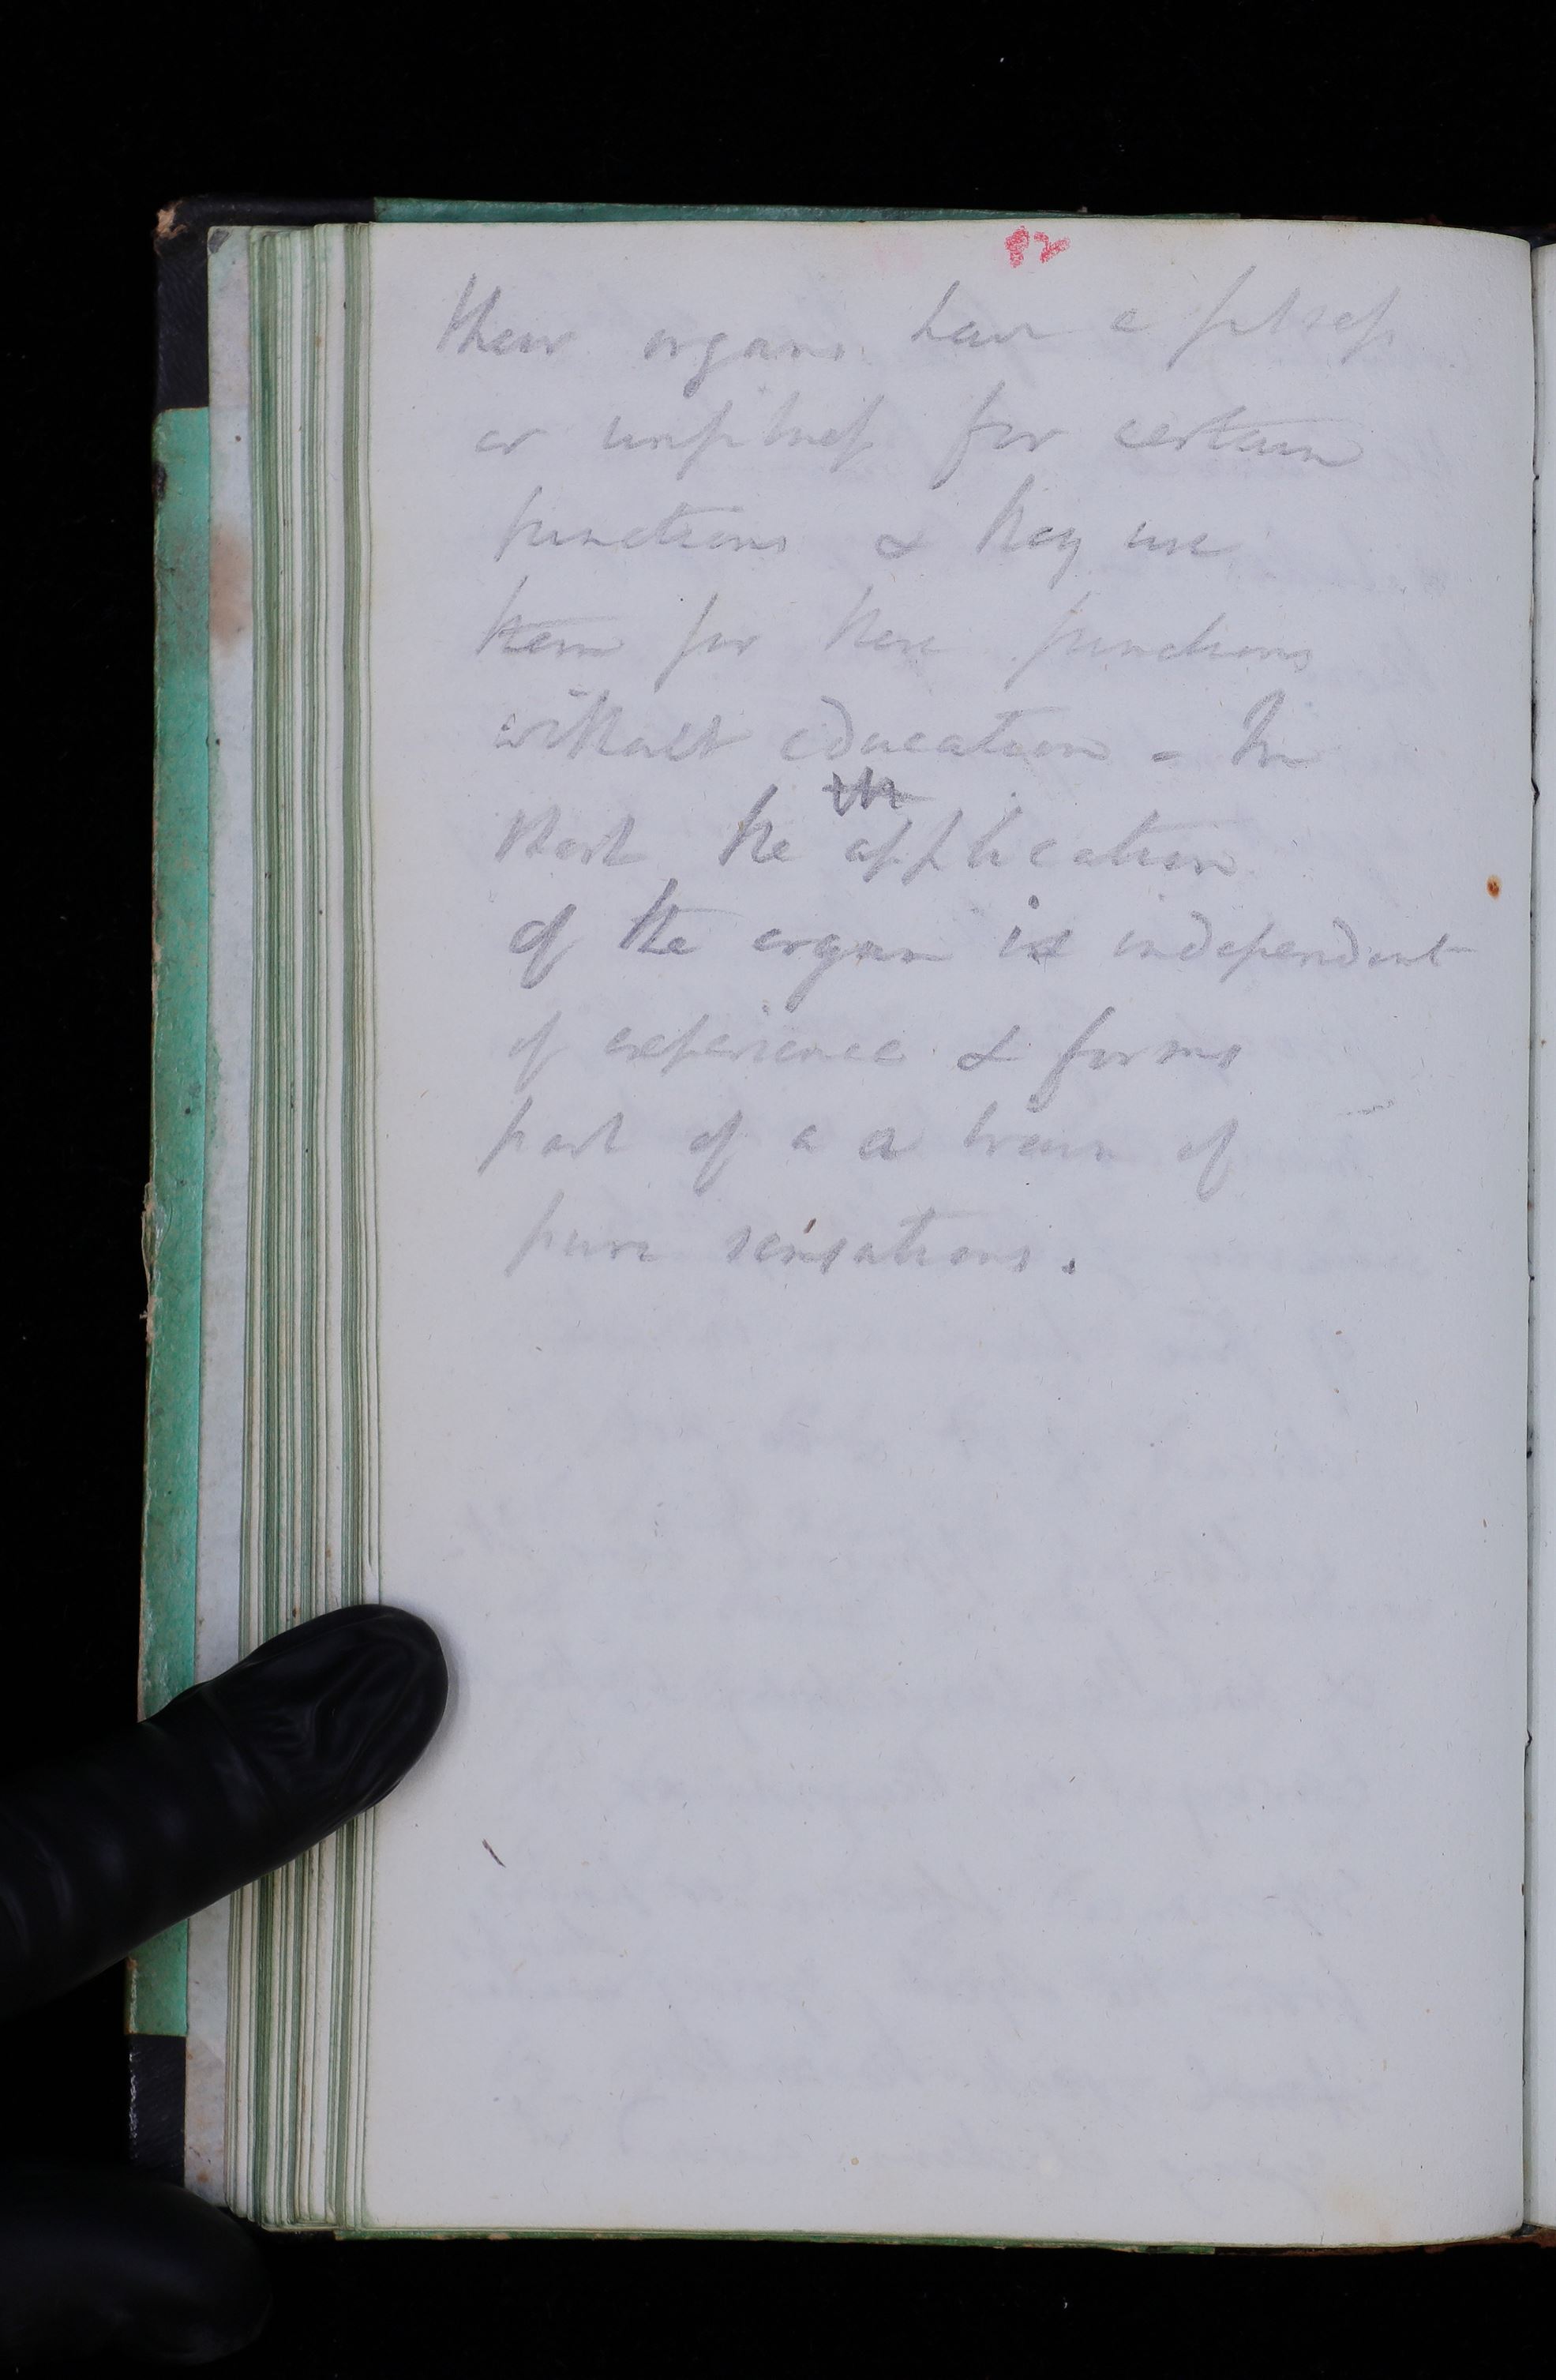 82
their organs have a fitness
or unfitness for certain
functions & they use
them for these functions
without education - In
short the application
of the organ is independent
of experience & forms
part of a a train of
pure sensations.